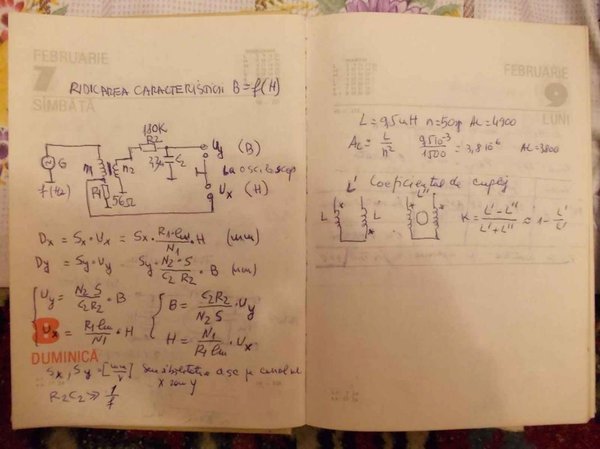 FEBRUARIE
7
SÎMBĂTĂ
RIDICAREA CARACTERISTICII B=f(H)
180K
R2
Uy (B)
G
n1
n2
C2
La osciloscop
R1
56Ω
Ux (H)
f(Hz)
Dx = Sx·Ux = Sx·R1·lm/N1·H (mm)
Dy = Sy·Uy Sy·N2·S/C2R2·B (mm)
Uy = N2S/C2R2·B
B = C2R2/N2S·Uy
Ux = R1lm/N1·H
H = N1/R1lm·Ux
8
DUMINICĂ
Sx, Sy = [mm/V] Sensibilitatea osc pe canalul
x sau y
R2C2 ≫ 1/f
FEBRUARIE
9
LUNI
L = 9,5mH n=50sp AL=4900
AL = L/n² = 3,8 10⁶ AL=3800
L' Coeficientul de cuplaj
L''
L L
K = L'-L''/L'+L'' ≈ 1-